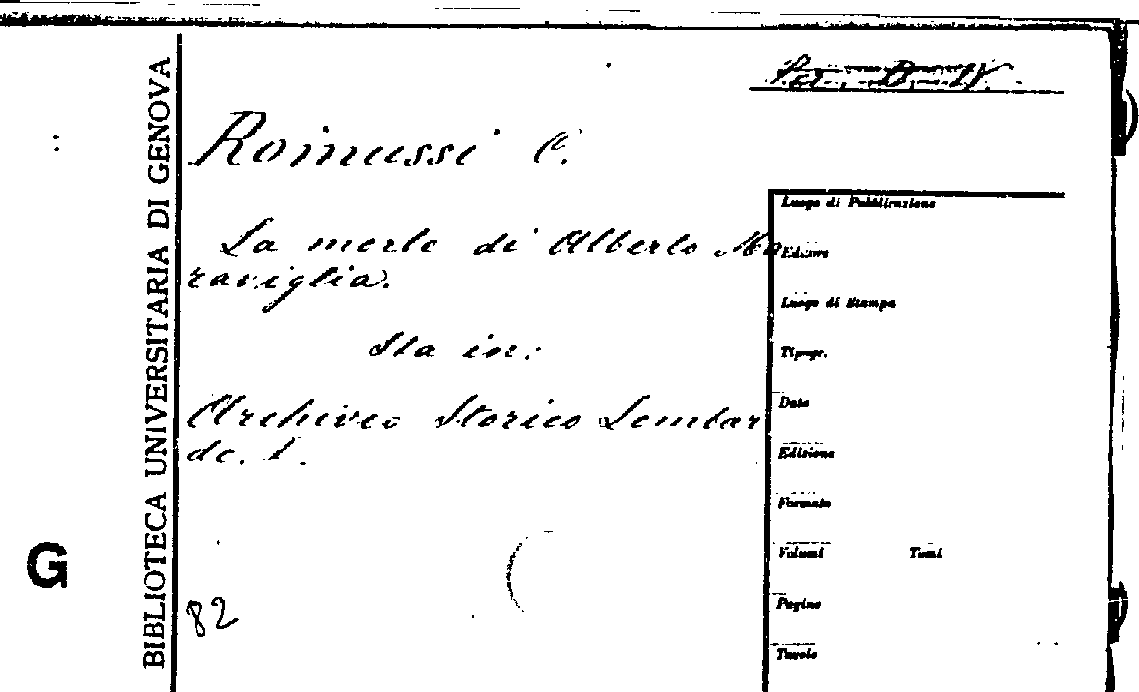 Per. B. IV.
BIBLIOTECA UNIVERSITARIA DI GENOVA
Romussi C.
La morte di Alberto Ma
raviglia.
Sta in:
Archivio Storico Lombar
do. 1.
82
G
Luogo di Pubblicazione
Editore
Luogo di Stampa
Tipogr.
Data
Edizione
Formato
Volumi Tomi
Pagine
Tavole